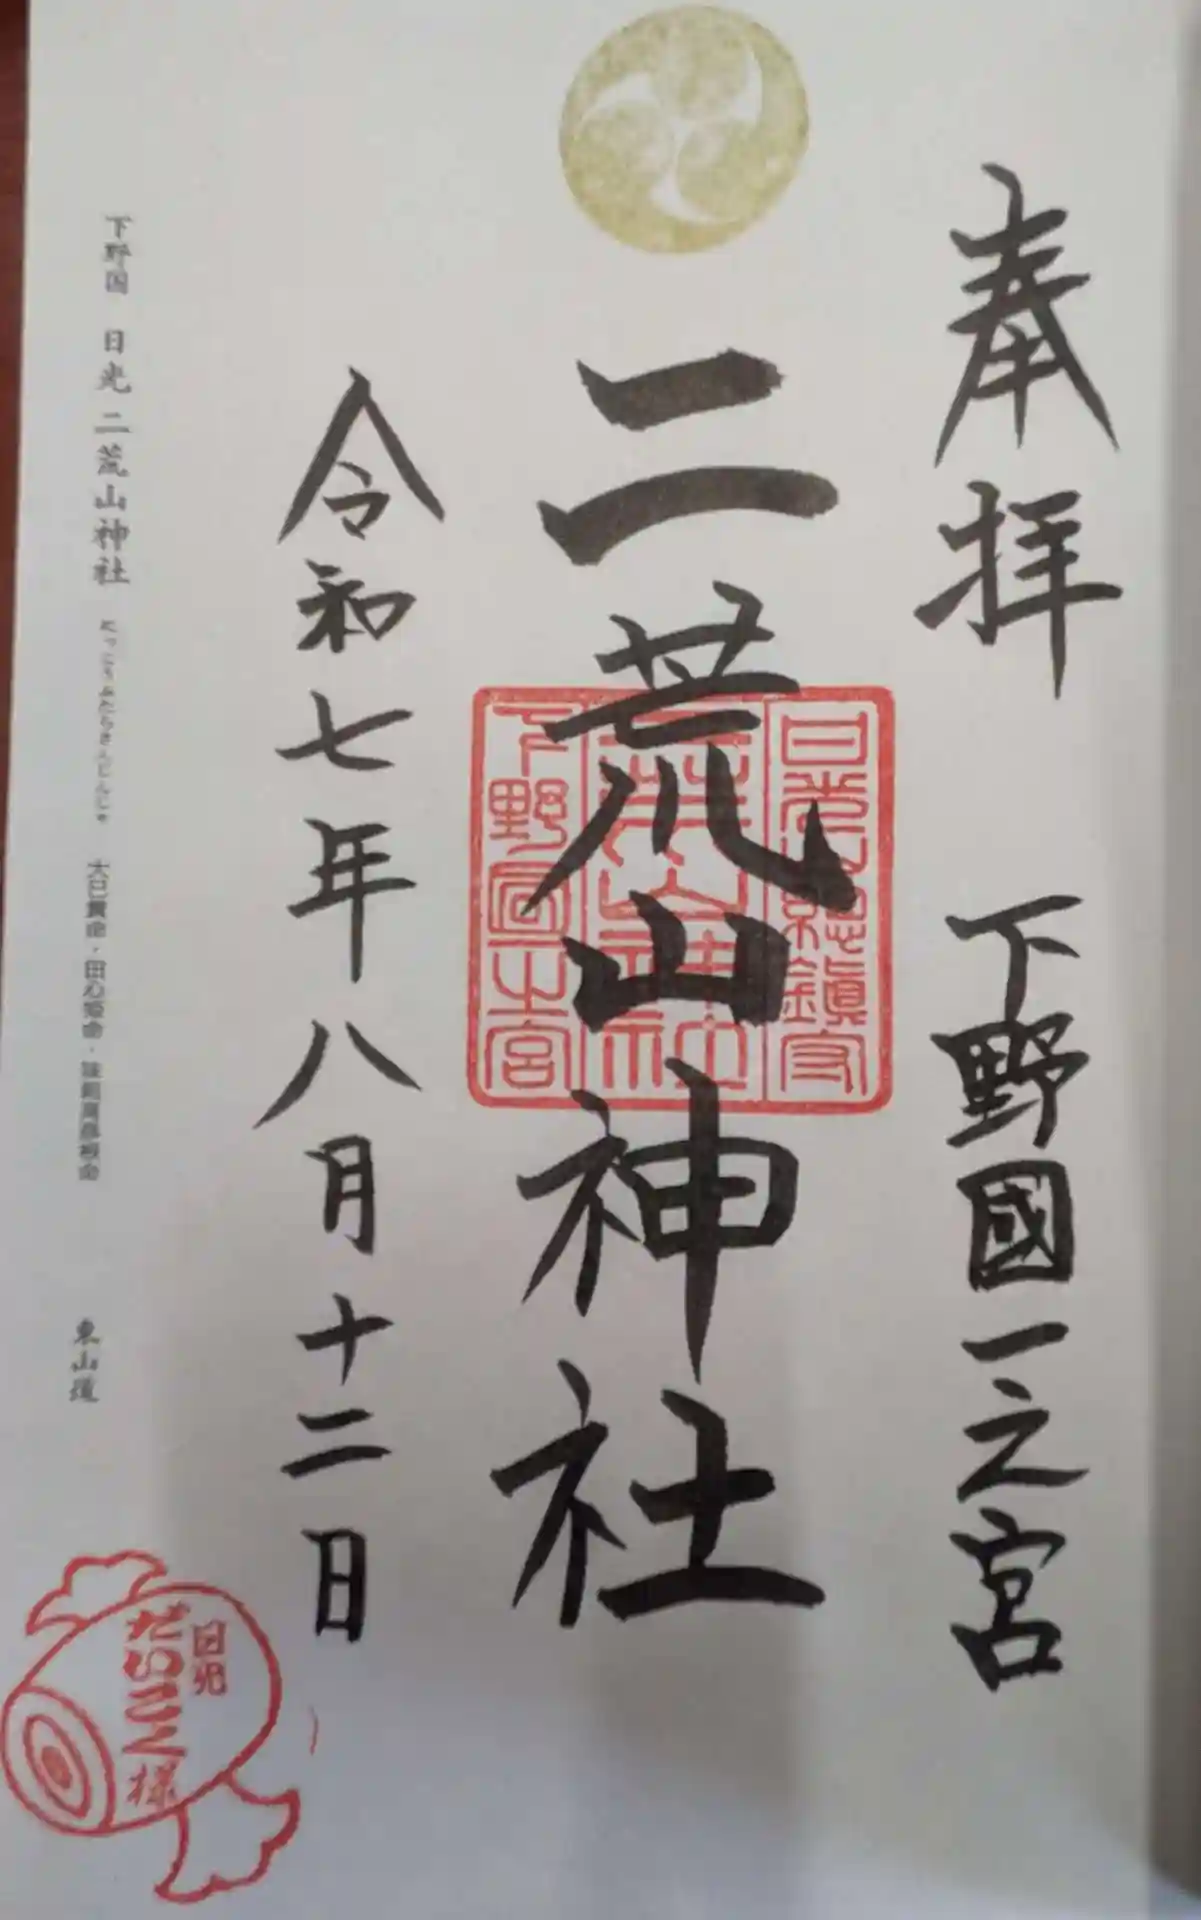 奉拝　下野國一之宮
二荒山神社
日光総鎮守
二荒山神社
下野国一之宮
令和七年八月十二日
下野国　日光二荒山神社　にっこうふたらさんじんじゃ　大己貴命・田心姫命・味耜高彦根命　東山道
日光
だいこく様